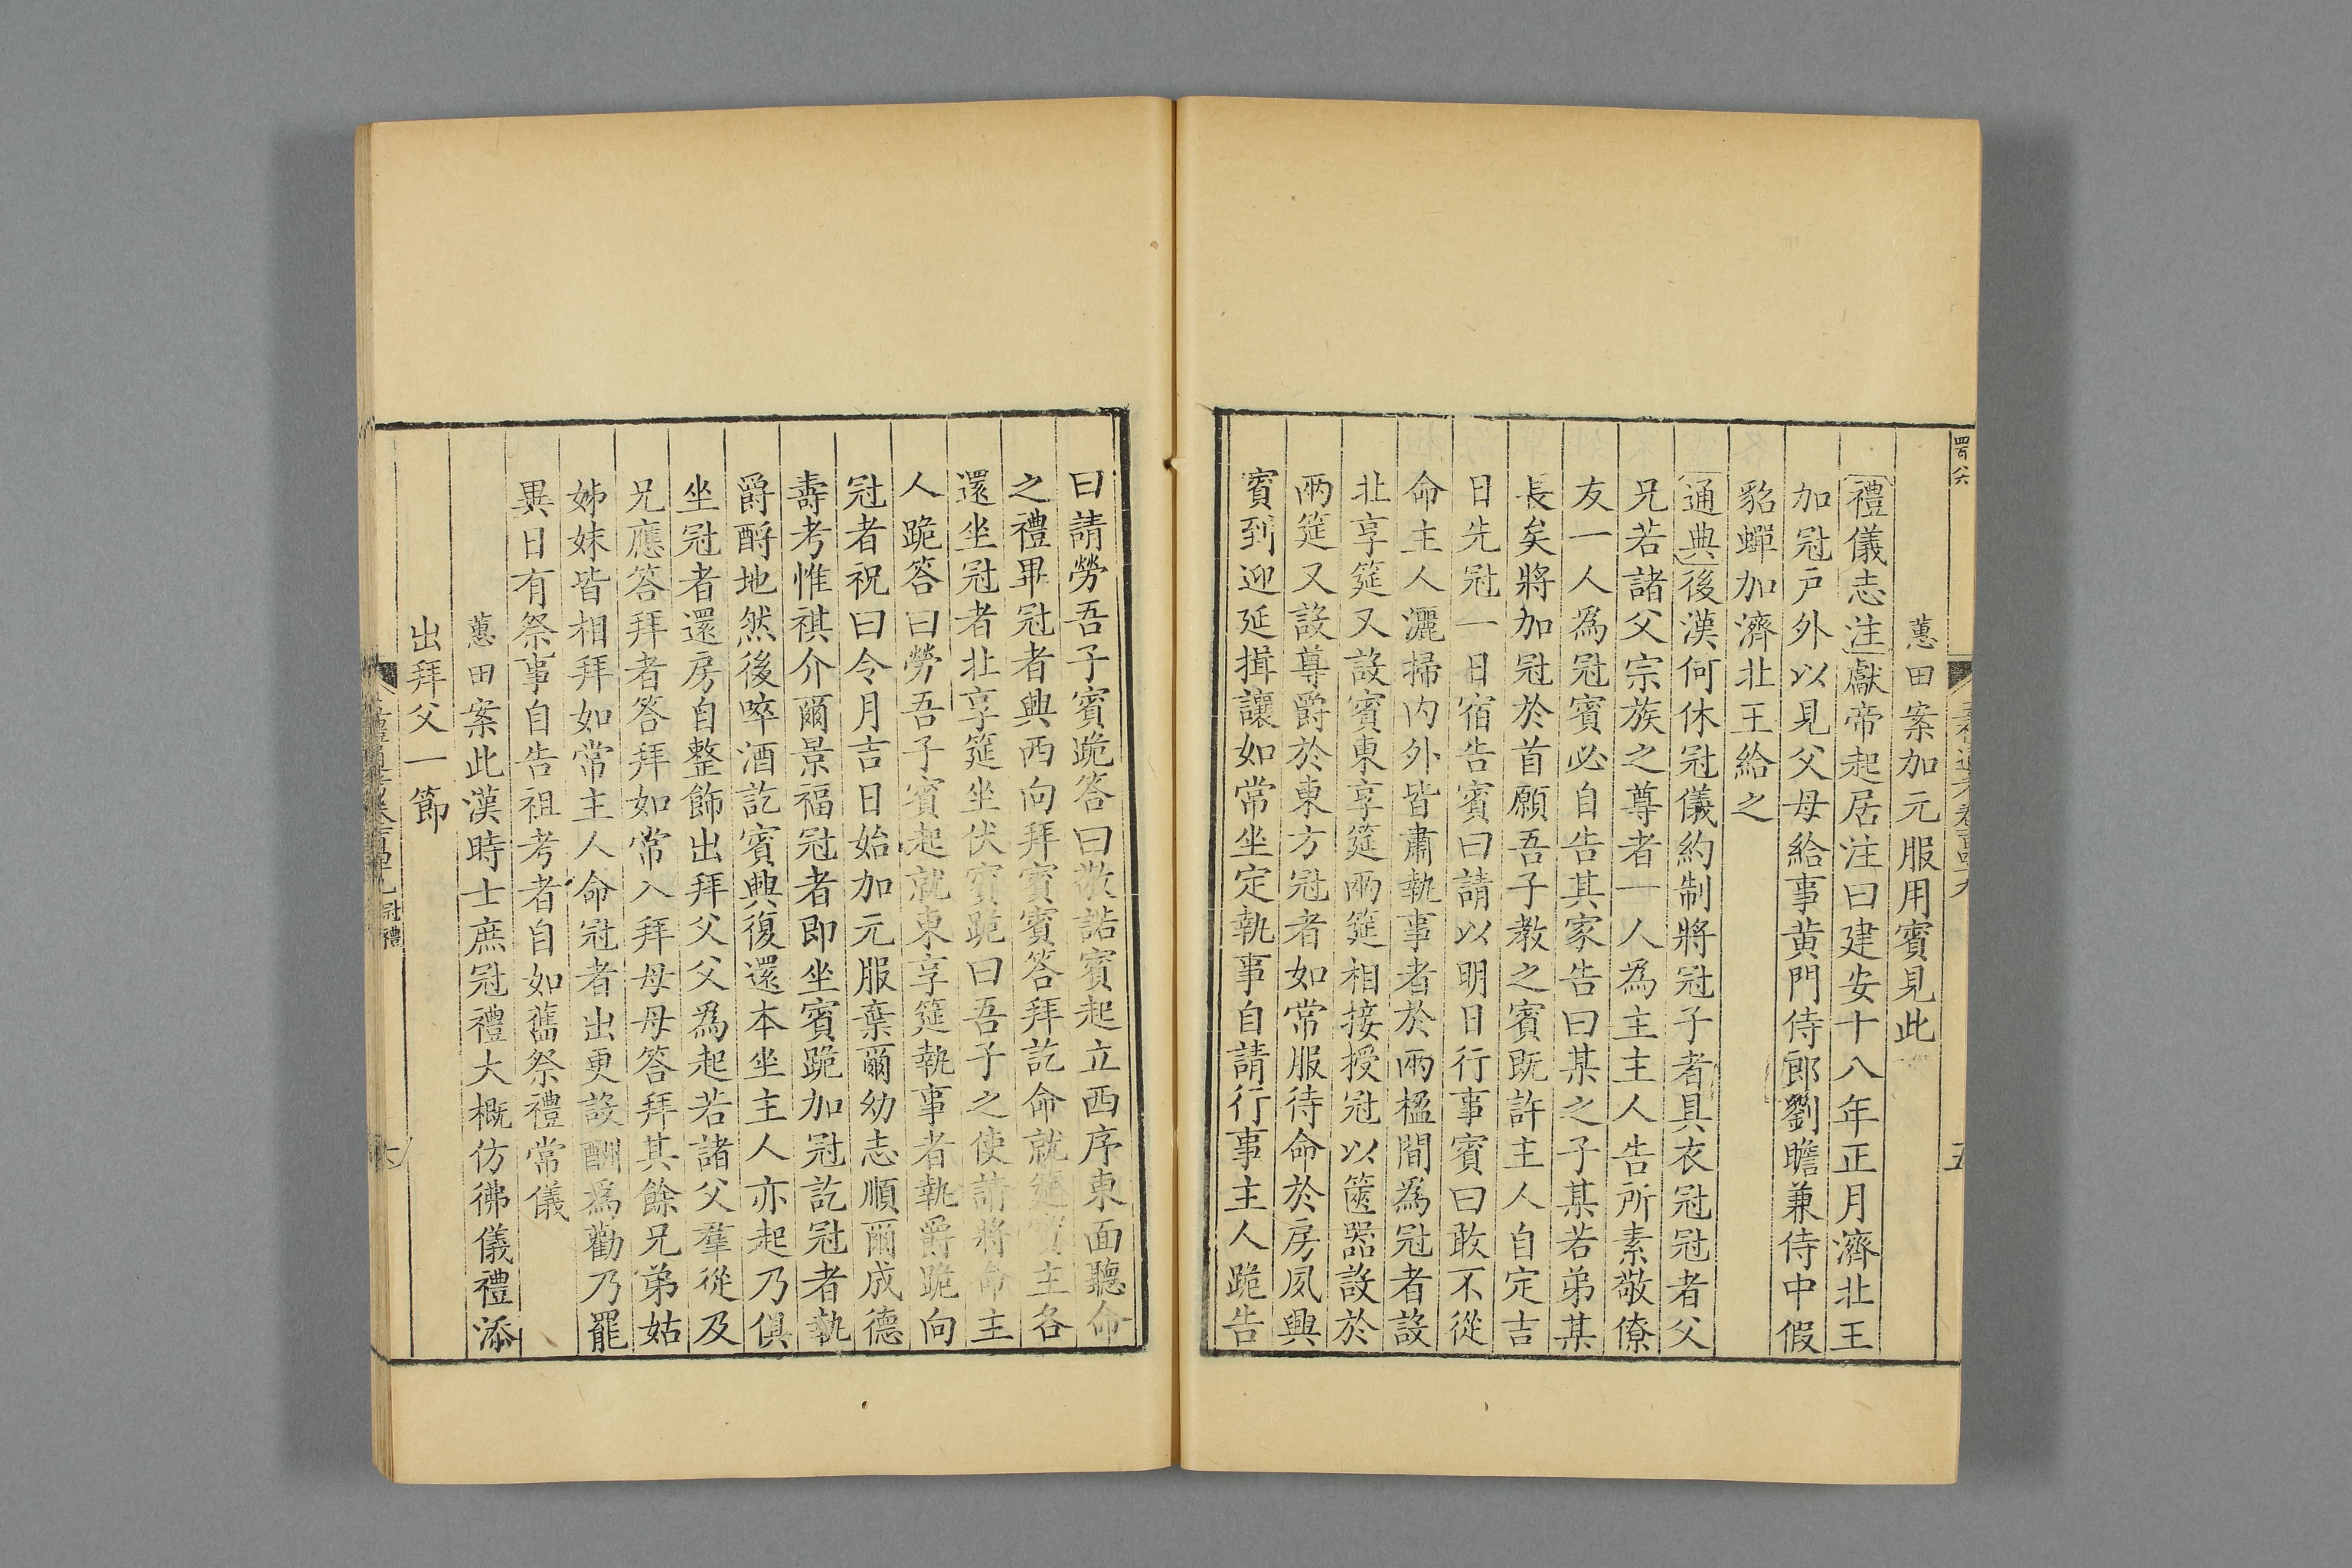 蕙田案加元服用賓見此
禮儀志注獻帝起居注曰建安十八年正月濟北王
加冠戶外以見父母給事黄門侍郎劉瞻兼侍中假
貂蟬加濟北王給之
通典後漢何休冠儀約制將冠子者具衣冠冠者父
兄若諸父宗族之尊者一人為主主人告所素敬僚
友一人為冠賓必自告其家告曰某之子某若弟某
長矣將加冠於首願吾子教之賓既許主人自定吉
日先冠一日宿告賓曰請以明日行事賓曰敢不從
命主人灑掃内外皆肅執事者於兩楹間為冠者設
北享筵又設賓東享筵兩筵相接授冠以篋器設於
兩筵又設尊爵於東方冠者如常服待命於房夙興
賓到迎延揖讓如常坐定執事自請行事主人跪告
曰請勞吾子賓跪答曰敬諾賓起立西序東面聽命
之禮畢冠者興西向拜賓賓答拜訖命就筵賓主各
還坐冠者北享筵坐伏賓跪曰吾子之使請將命主
人跪答曰勞吾子賓起就東享筵執事者執爵跪向
冠者祝曰令月吉日始加元服棄爾幼志順爾成德
壽考惟祺介爾景福冠者即坐賓跪加冠訖冠者執
爵酹地然後啐酒訖賓興復還本坐主人亦起乃俱
坐冠者還房自整飾出拜父父為起若諸父羣從及
兄應答拜者答拜如常入拜母母答拜其餘兄弟姑
姊妹皆相拜如常主人命冠者出更設酬為勸乃罷
異日有祭事自告祖考者自如舊祭禮常儀
蕙田案此漢時士庶冠禮大概仿彿儀禮添
出拜父一節
冠禮